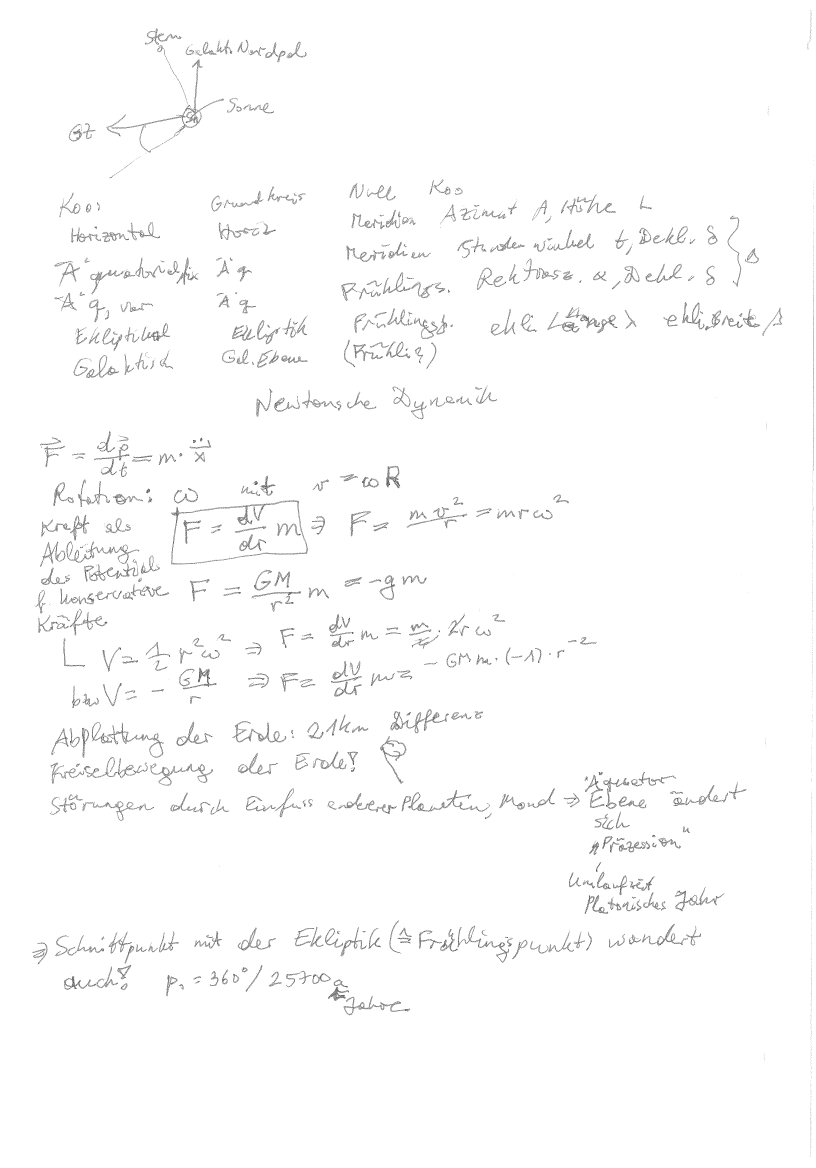 Stern
Galakt. Nordpol
Sonne
GZ
Koo: Grundkreis Null Koo
Horizontal Horiz Meridian Azimut A, Höhe h
Äquatorial fix Äq Meridian Stundenwinkel t, Dekl. δ
Äq, var Äq Frühlings. Rektasz. α, Dekl. δ
Ekliptikal Ekliptik Frühlingsp. ekli Länge λ ekli. Breite β
Galaktisch Gal. Ebene (Frühli?)
Newtonsche Dynamik
F⃗ = dp⃗/dt = m · ẍ⃗
Rotation: ω mit v = ωR
Kraft als Ableitung des Potential f. konservative Kräfte
F = dV/dr m ⇒ F = mv²/r = mrω²
F = GM/r² m = -gm
V = 1/2 r²ω² ⇒ F = dV/dr m = m/2 · 2rω²
bzw V = - GM/r ⇒ F = dV/dr m = -GMm · (-1) · r⁻²
Abplattung der Erde: 21km Differenz
Kreiselbewegung der Erde!
Störungen durch Einfuss anderer Planeten, Mond ⇒ Äquator
Ebene ändert
sich
"Präzession"
Umlaufzeit
Platonisches Jahr
⇒ Schnittpunkt mit der Ekliptik (≙ Frühlingspunkt) wandert
auch! p. = 360°/25700a
Jahre